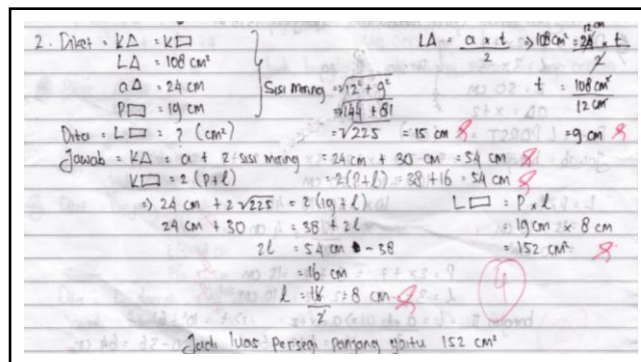 2. Diket = K△ = K▭
L△ = 108 cm²
a△ = 24 cm
P▭ = 19 cm
Dita = L▭ = ? (cm²)
Sisi miring = √12² + 9²
= √144 + 81
= √225 = 15 cm
L△ = a x t / 2 ⇒ 108 cm² = 24 x t / 2
12 cm
t = 108 cm² / 12 cm
= 9 cm
Jawab = K△ = a + 2 sisi miring = 24 cm + 30 cm = 54 cm
K▭ = 2 (p+l) = 2(p+l) = 38 + 16 = 54 cm
⇒ 24 cm + 2 √225 = 2 (19 + l)
24 cm + 30 = 38 + 2l
2l = 54 cm - 38
= 16 cm
l = 16 / 2 = 8 cm
L▭ = P x l
= 19 cm x 8 cm
= 152 cm²
4
Jadi luas persegi panjang yaitu 152 cm²